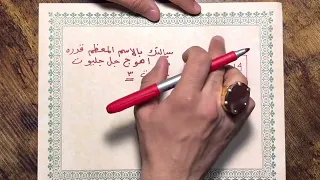 سالتك بالاسم المعظم قدره
اهوج جل جليوت
٣